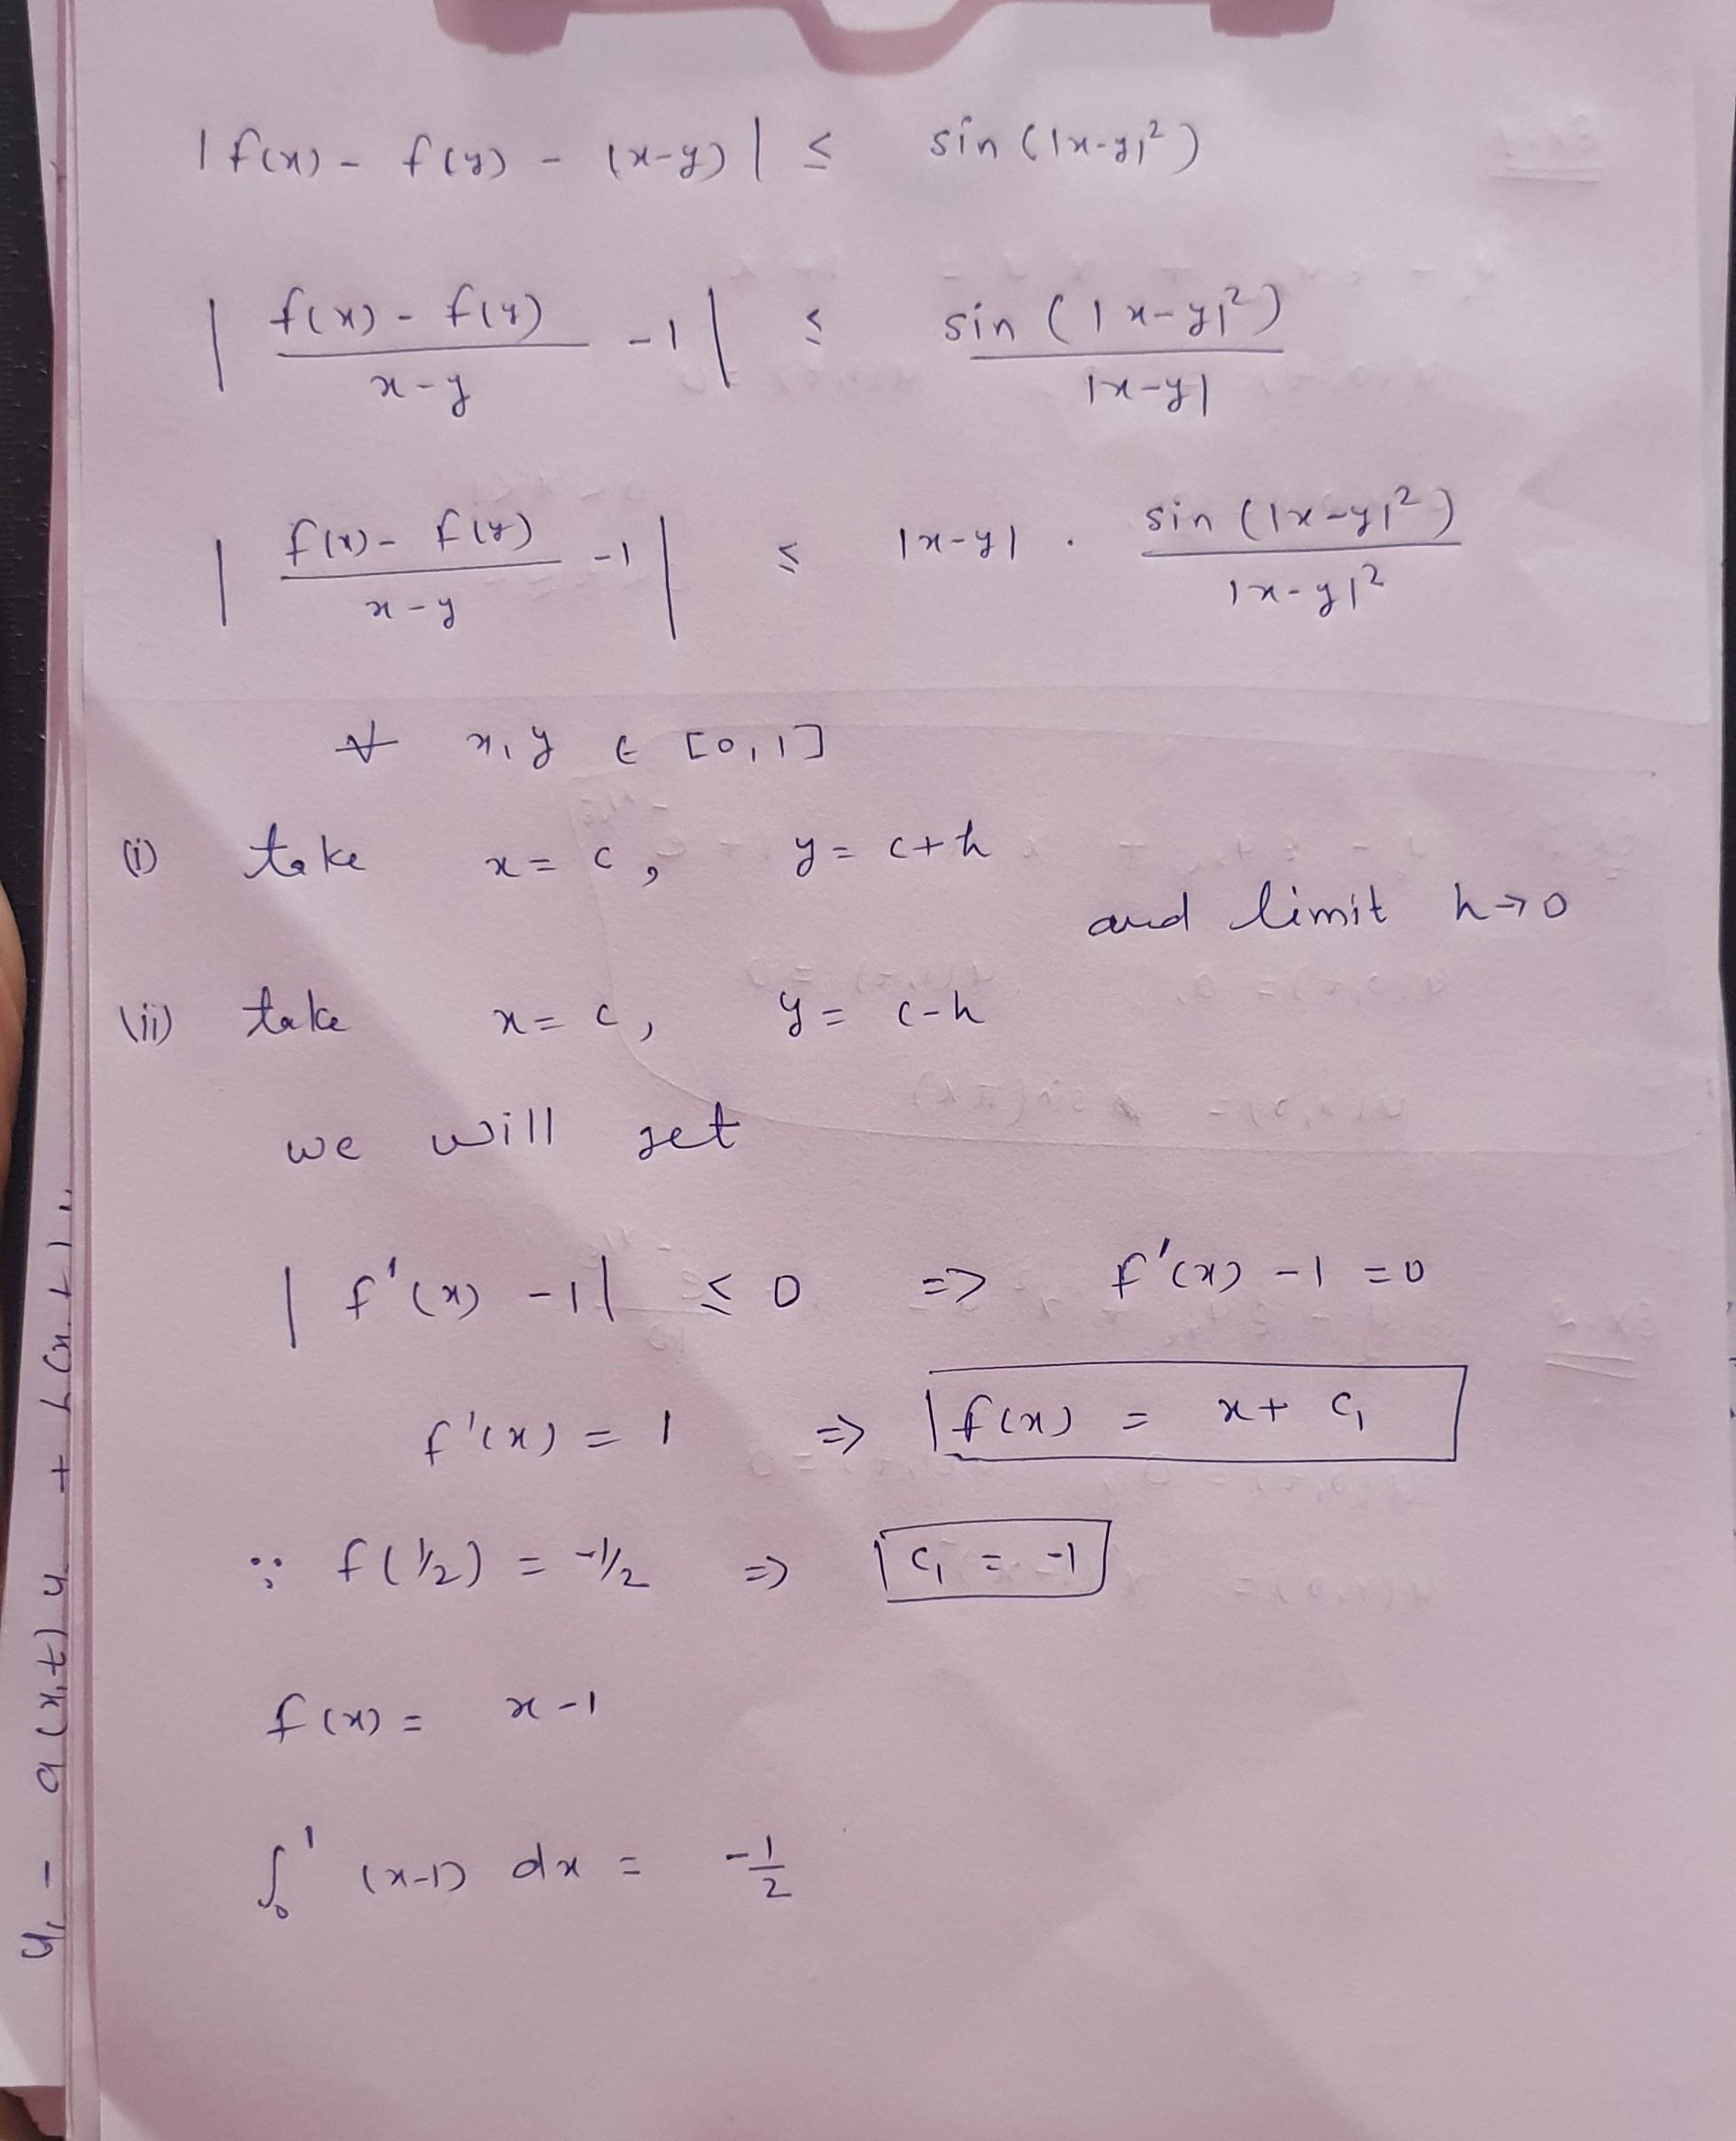 |f(x) - f(y) - (x-y)| ≤ sin(|x-y|²)
| (f(x) - f(y))/(x-y) - 1 | ≤ sin(|x-y|²)/|x-y|
| (f(x) - f(y))/(x-y) - 1 | ≤ |x-y| · sin(|x-y|²)/|x-y|²
∀ x, y ∈ [0,1]
(i) take x = c, y = c+h
and limit h→0
(ii) take x = c, y = c-h
we will get
| f'(x) - 1 | ≤ 0 => f'(x) - 1 = 0
f'(x) = 1 => f(x) = x + c₁
∵ f(1/2) = -1/2 => c₁ = -1
f(x) = x - 1
∫₀¹ (x-1) dx = -1/2